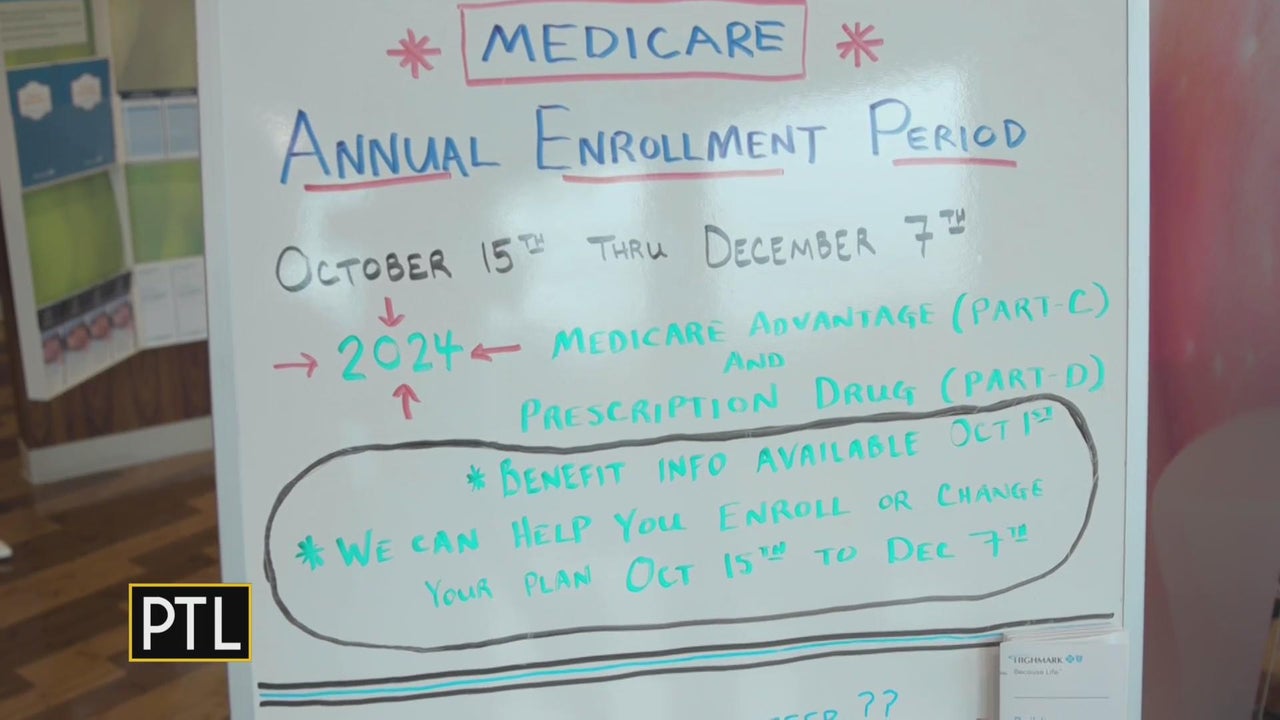 * MEDICARE *
ANNUAL ENROLLMENT PERIOD
OCTOBER 15TH THRU DECEMBER 7TH
2024 MEDICARE ADVANTAGE (PART-C)
AND
PRESCRIPTION DRUG (PART-D)
* BENEFIT INFO AVAILABLE OCT 1ST
* WE CAN HELP YOU ENROLL OR CHANGE
YOUR PLAN OCT 15TH TO DEC 7TH
PTL
HIGHMARK
Because Life
??